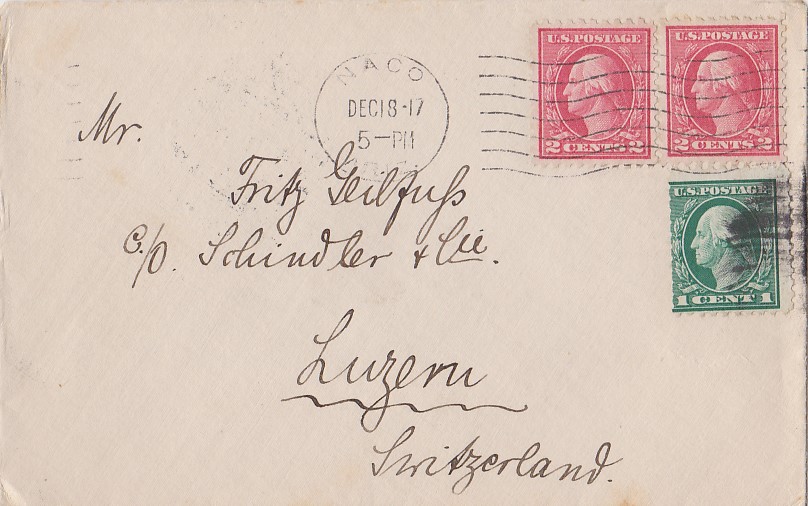 NACO
DEC 18-17
5-PM
U.S. POSTAGE
2 CENTS 2
U.S. POSTAGE
2 CENTS 2
U.S. POSTAGE
1 CENT 1
Mr.
Fritz Geilfuss
c/o. Schindler & Cie.
Luzern
Switzerland.